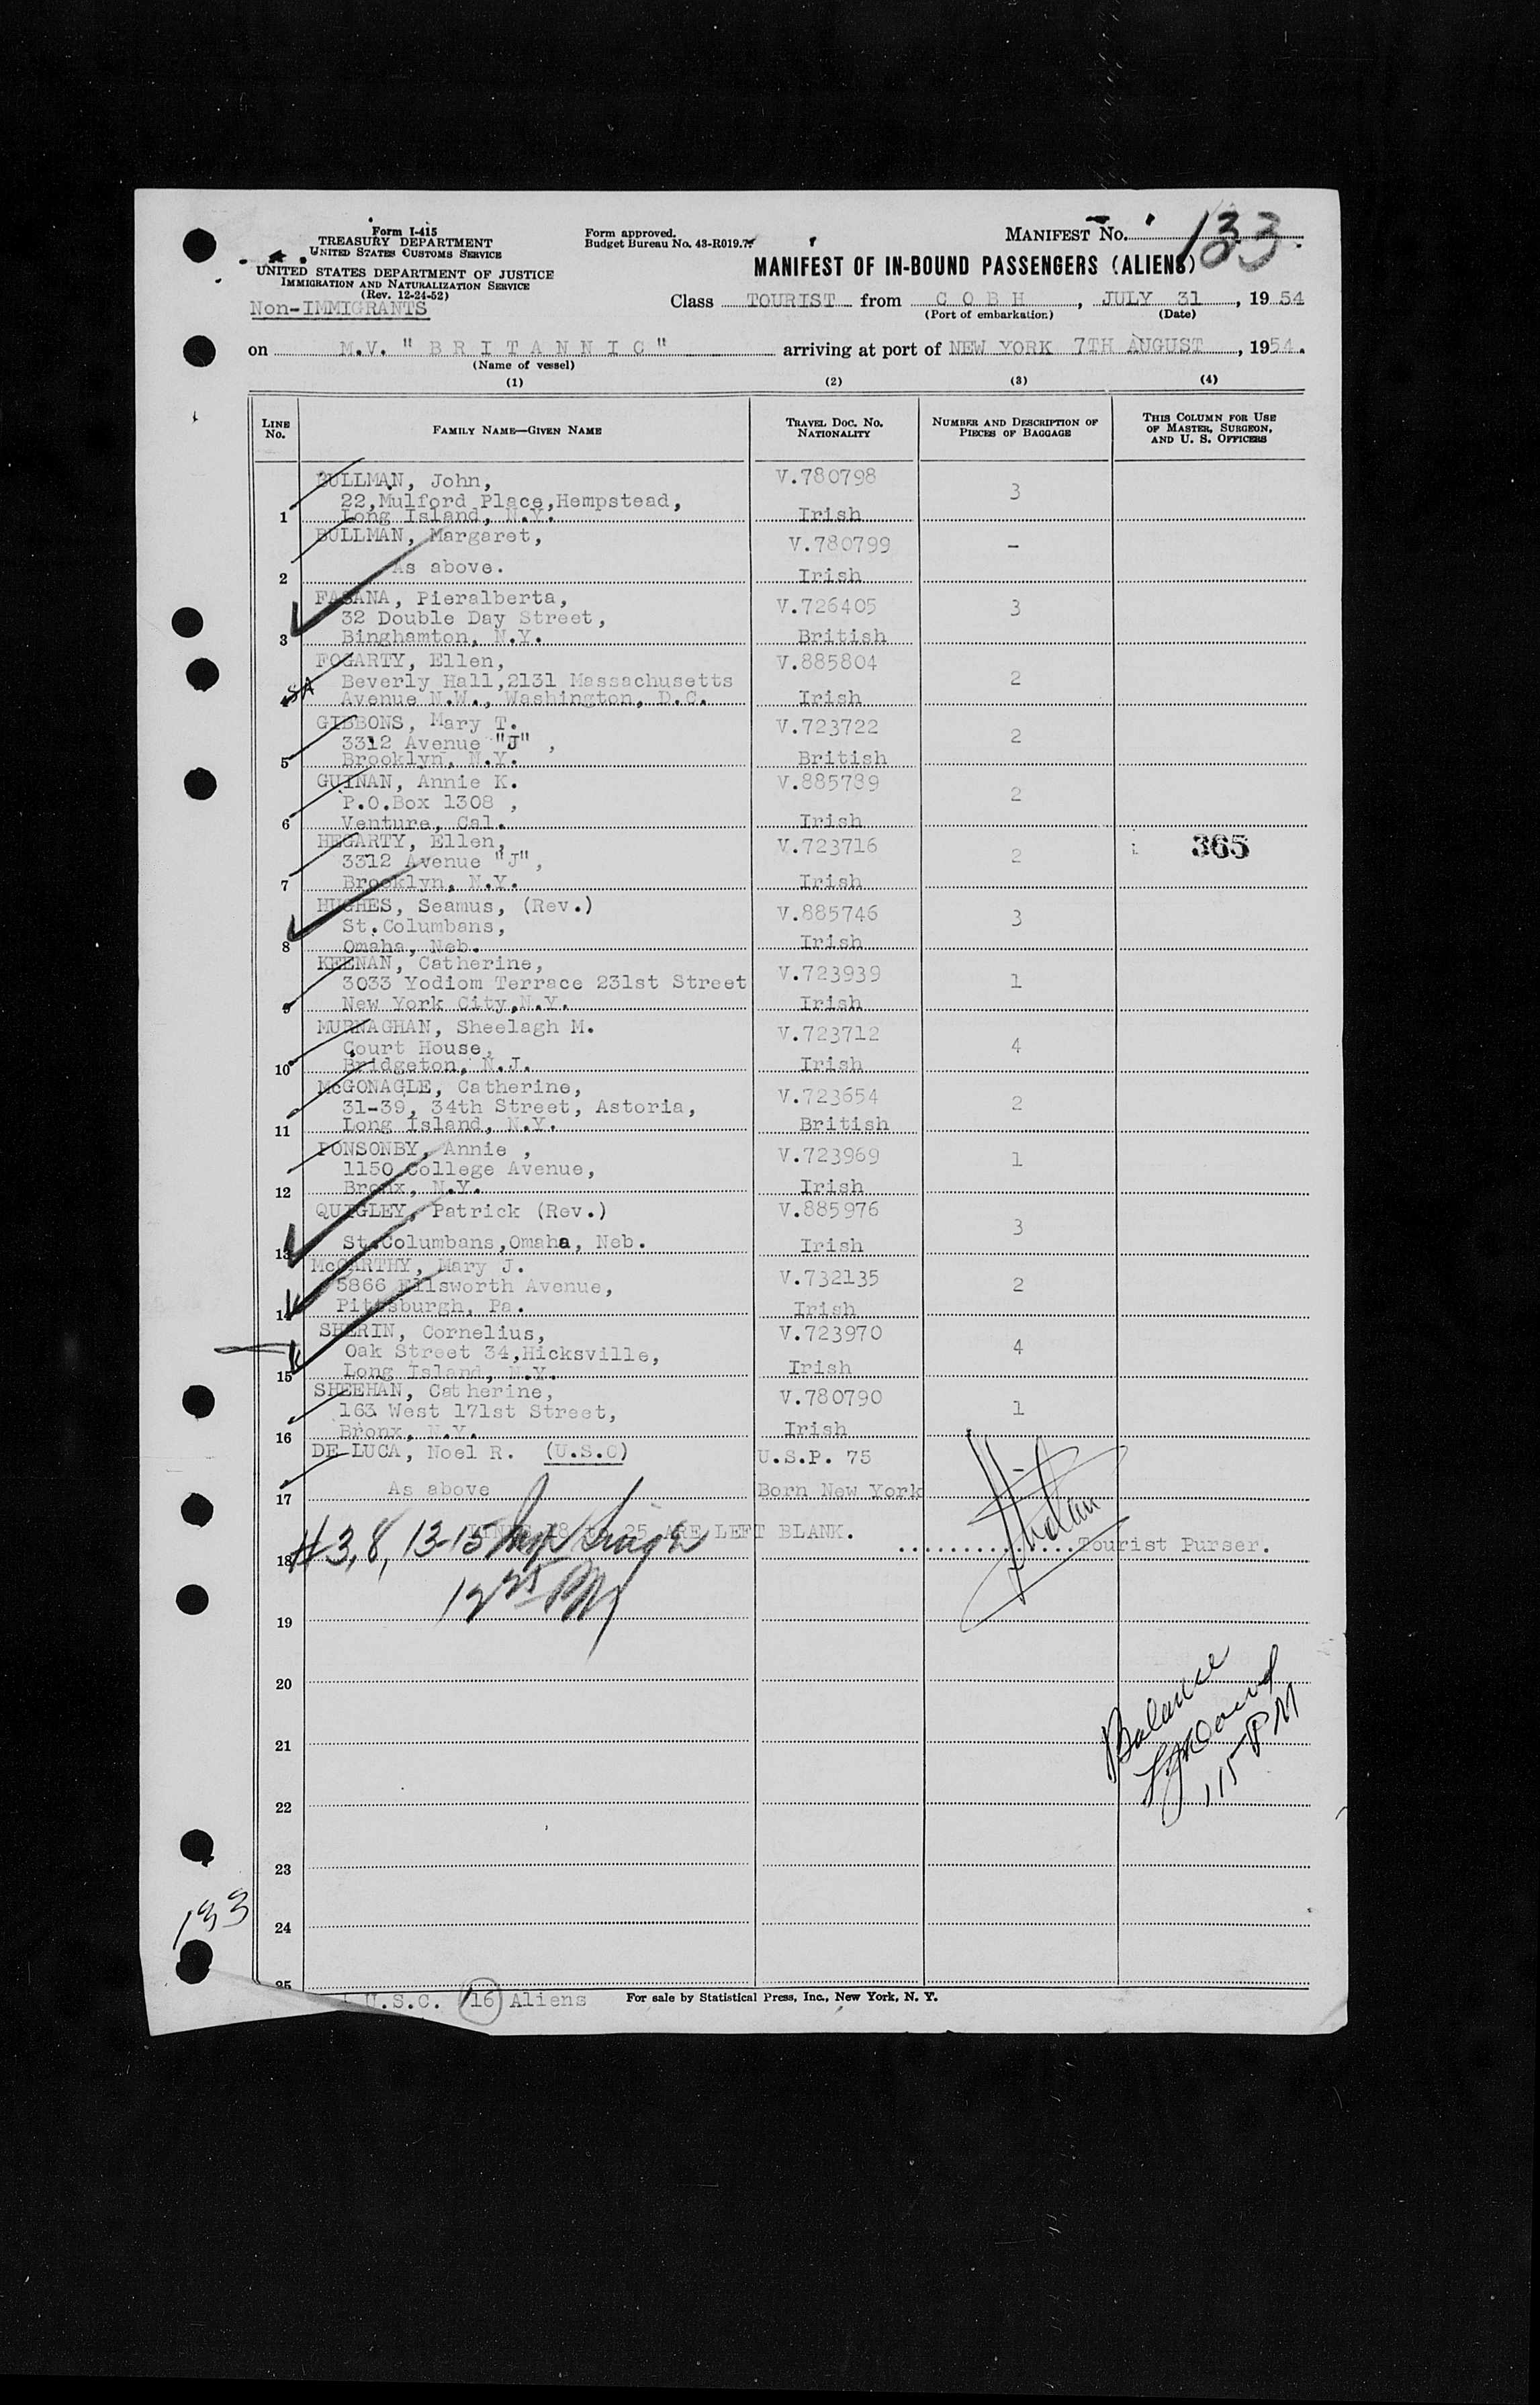 Form I-415
TREASURY DEPARTMENT
UNITED STATES CUSTOMS SERVICE
UNITED STATES DEPARTMENT OF JUSTICE
IMMIGRATION AND NATURALIZATION SERVICE
(Rev. 12-24-52)
Non-IMMIGRANTS
Form approved.
Budget Bureau No. 43-R019.7
MANIFEST No. 133
MANIFEST OF IN-BOUND PASSENGERS (ALIENS)
Class TOURIST from C O B H , JULY 31 , 1954
(Port of embarkation) (Date)
on M.V. " B R I T A N N I C " arriving at port of NEW YORK 7TH AUGUST , 1954.
(Name of vessel)
(1) (2) (3) (4)
LINE No. FAMILY NAME—GIVEN NAME TRAVEL DOC. NO. NATIONALITY NUMBER AND DESCRIPTION OF PIECES OF BAGGAGE THIS COLUMN FOR USE OF MASTER, SURGEON, AND U. S. OFFICERS
BULLMAN, John, V.780798
22,Mulford Place,Hempstead, 3
1 Long Island, N.Y. Irish
BULLMAN, Margaret, V.780799 -
As above.
2 Irish
FASANA, Pieralberta, V.726405 3
32 Double Day Street,
3 Binghamton, N.Y. British
FOGARTY, Ellen, V.885804
SA Beverly Hall,2131 Massachusetts 2
4 Avenue N.W., Washington, D.C. Irish
GIBBONS, Mary T. V.723722
3312 Avenue "J" , 2
5 Brooklyn, N.Y. British
GUINAN, Annie K. V.885789
P.O.Box 1308 , 2
6 Venture, Cal. Irish
HEGARTY, Ellen, V.723716 365
3312 Avenue "J", 2
7 Brooklyn, N.Y. Irish
HUGHES, Seamus, (Rev.) V.885746
St.Columbans, 3
8 Omaha, Neb. Irish
KEENAN, Catherine, V.723939
3033 Yodiom Terrace 231st Street 1
9 New York City,N.Y. Irish
MURNAGHAN, Sheelagh M. V.723712
Court House, 4
10 Bridgeton, N.J. Irish
McGONAGLE, Catherine, V.723654
31-39, 34th Street, Astoria, 2
11 Long Island, N.Y. British
PONSONBY, Annie , V.723969
1150 College Avenue, 1
12 Bronx, N.Y. Irish
QUIGLEY, Patrick (Rev.) V.885976
3
13 St.Columbans,Omaha, Neb. Irish
McCARTHY, Mary J. V.732135
5866 Ellsworth Avenue, 2
14 Pittsburgh, Pa. Irish
SHERIN, Cornelius, V.723970
Oak Street 34,Hicksville, 4
15 Long Island, N.Y. Irish
SHEEHAN, Catherine, V.780790
163 West 171st Street, 1
16 Bronx, N.Y. Irish
DE LUCA, Noel R. (U.S.C) U.S.P. 75 -
As above Born New York
17
LINES 18 to 25 ARE LEFT BLANK.
#3,8, 13-15
18 Tourist Purser.
12 25 PM
19
20
Balance
21
115 PM
22
23
133
24
25
1 U.S.C. 16 Aliens For sale by Statistical Press, Inc., New York, N. Y.